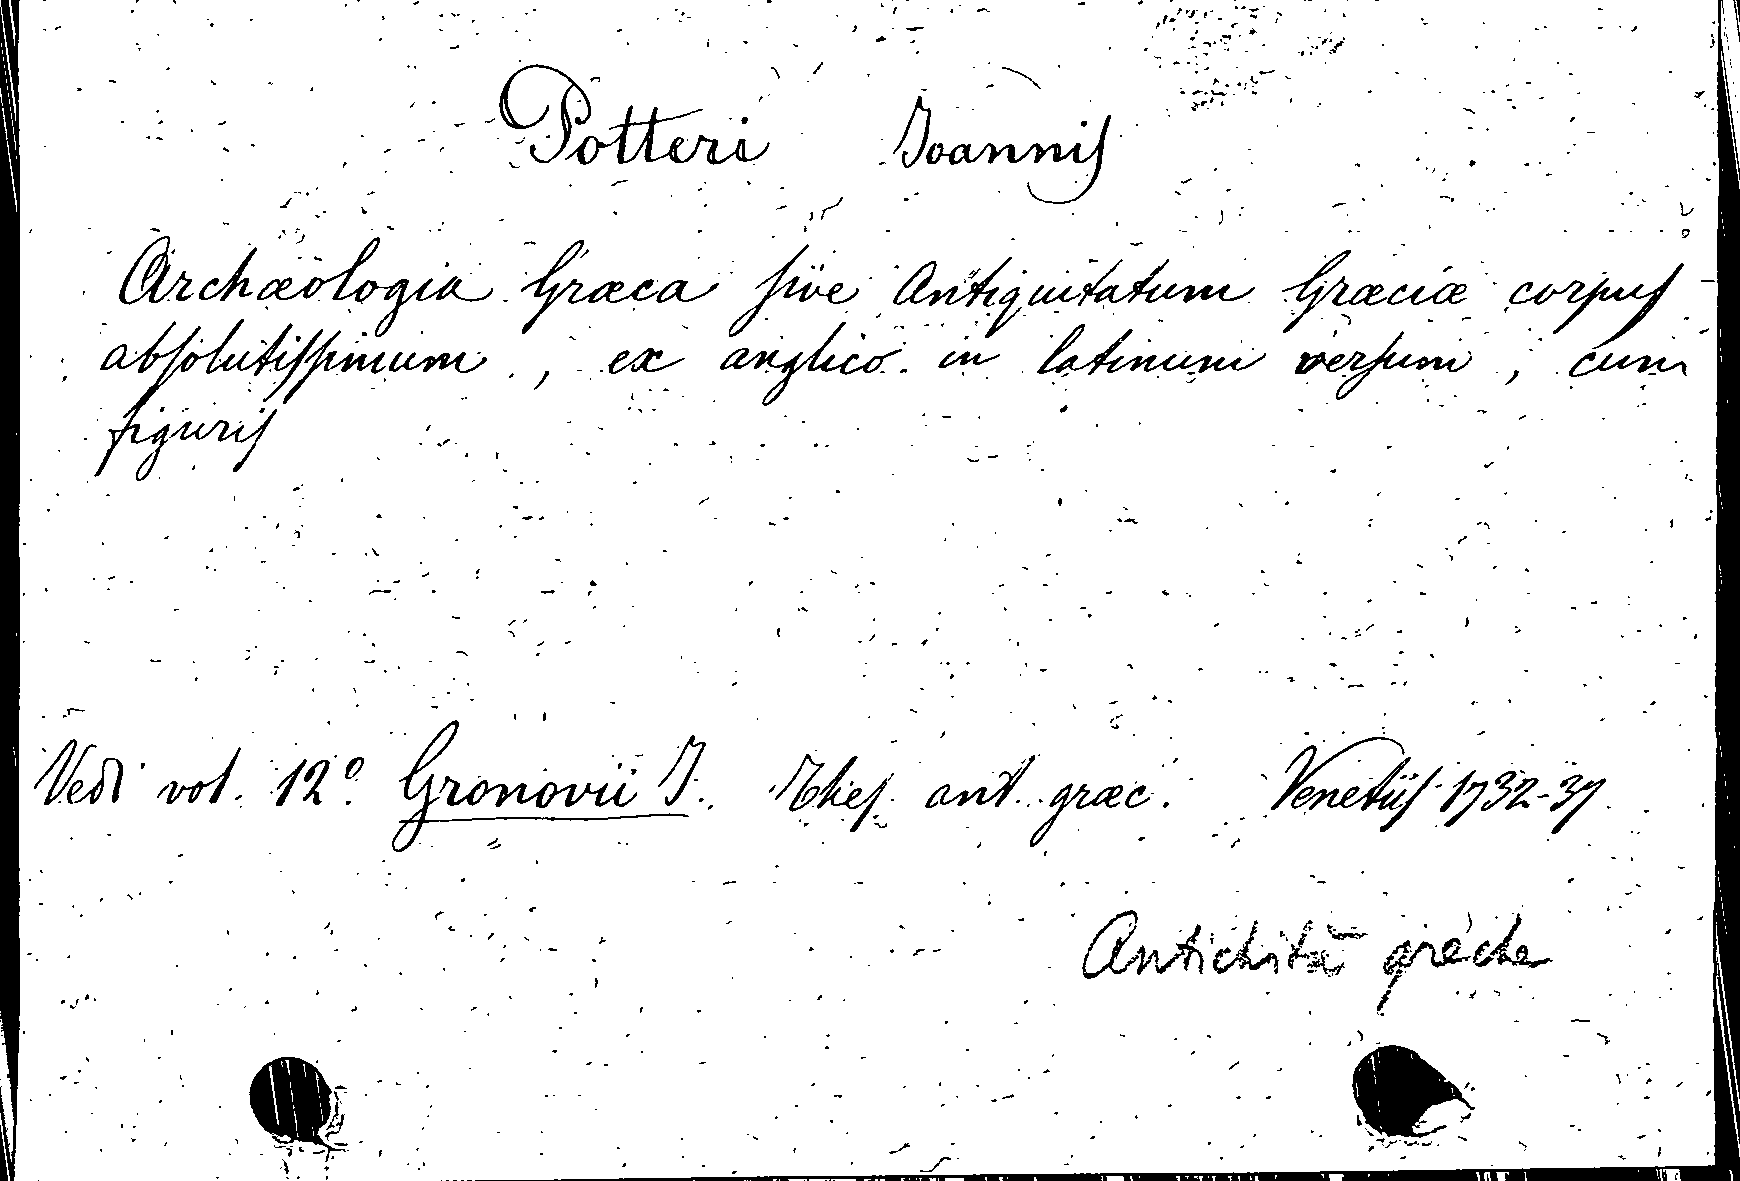 Potteri Joannis
Archæologia Græca sive Antiquitatum Græciæ corpus
absolutissimum, ex anglico in latinum versum, cum
figuris
Vedi vol. 12º Gronovii J. Thes. ant. græc. Venetiis 1732-37
Antichità greche